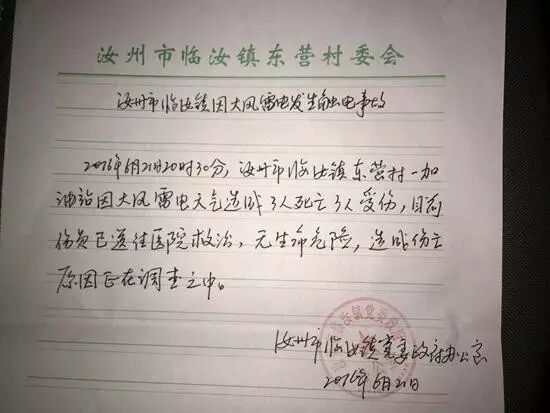 汝州市临汝镇东营村委会
汝州市临汝镇因大风雷电发生触电事故
2016年6月21日20时30分,汝州市临汝镇东营村一加
油站因大风雷电天气造成3人死亡3人受伤,目前
伤员已送往医院救治,无生命危险,造成伤亡
原因正在调查之中。
汝州市临汝镇党委政府办公室
2016年6月21日